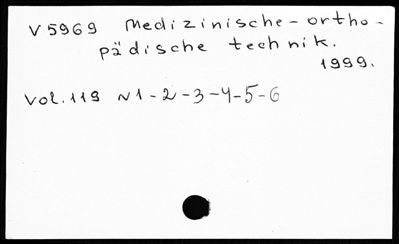 V5969 Medizinische-ortho-
pädische technik.
1999.
Vol.119 N1-2-3-4-5-6